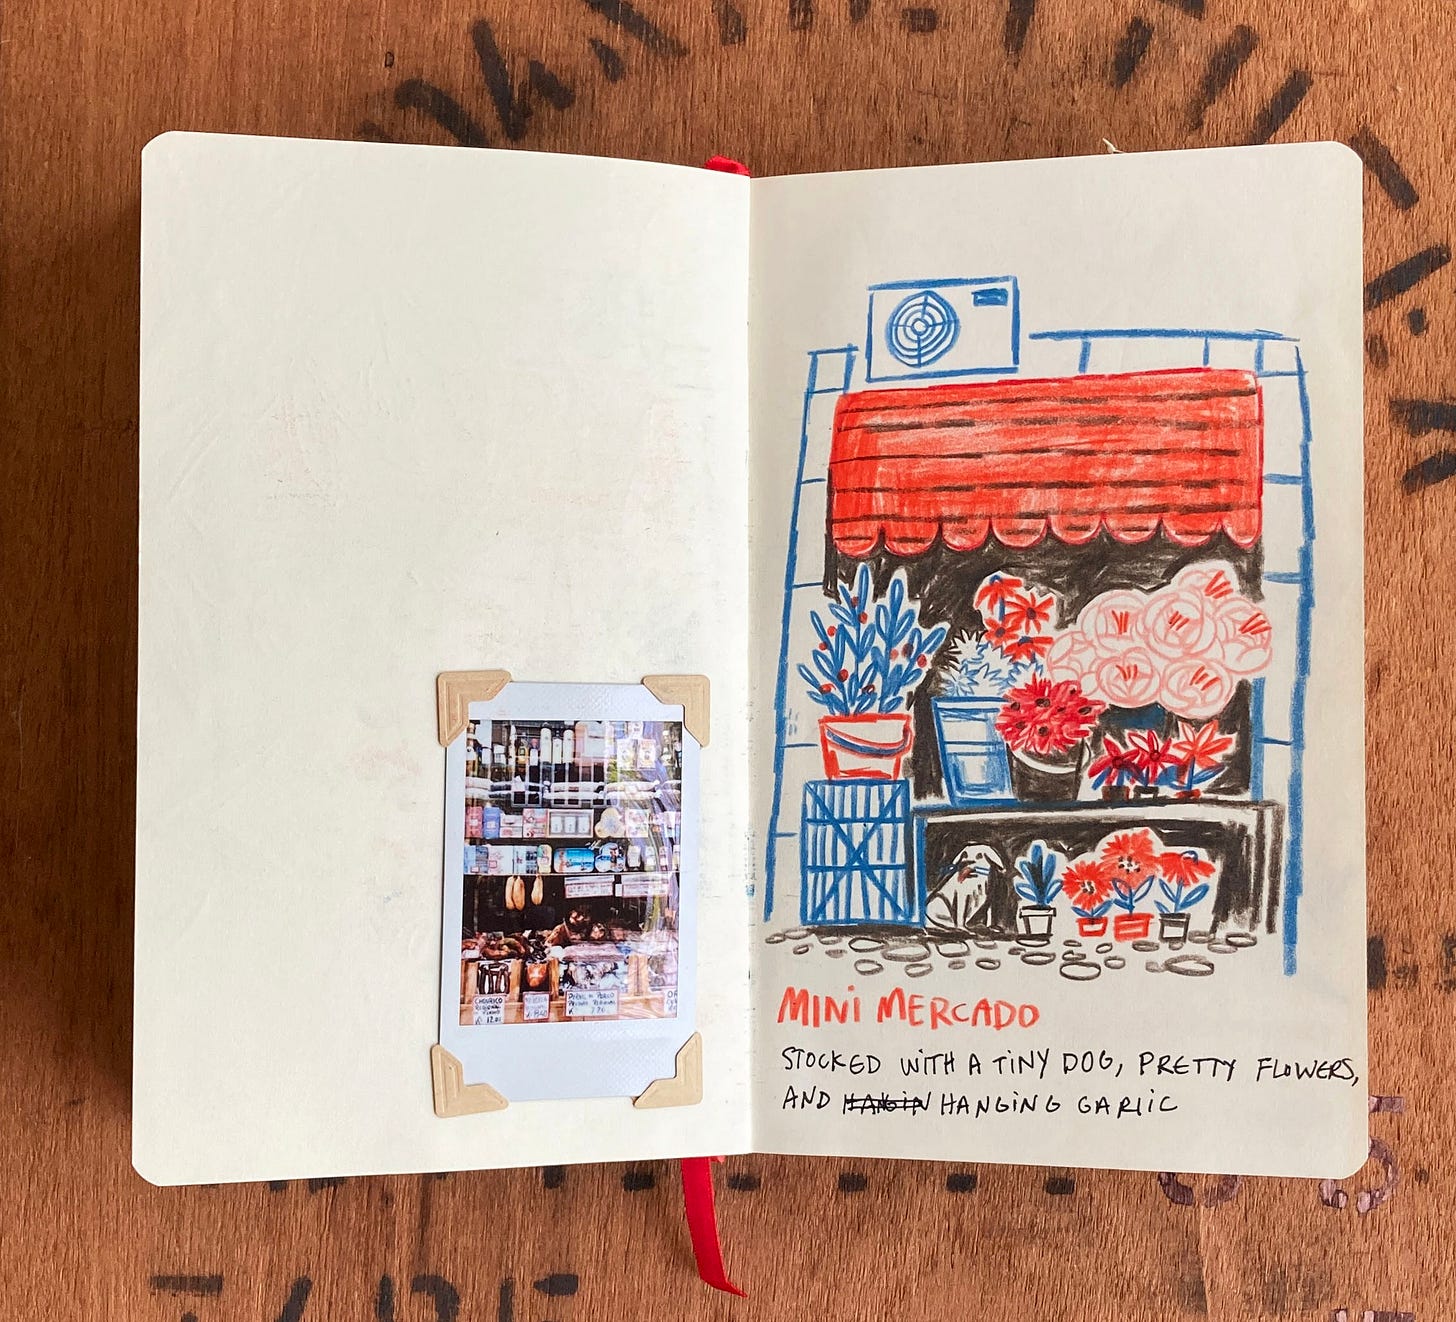 CHOURIÇO
REGIONAL
MINI MERCADO
STOCKED WITH A TINY DOG, PRETTY FLOWERS,
AND HANGING GARLIC